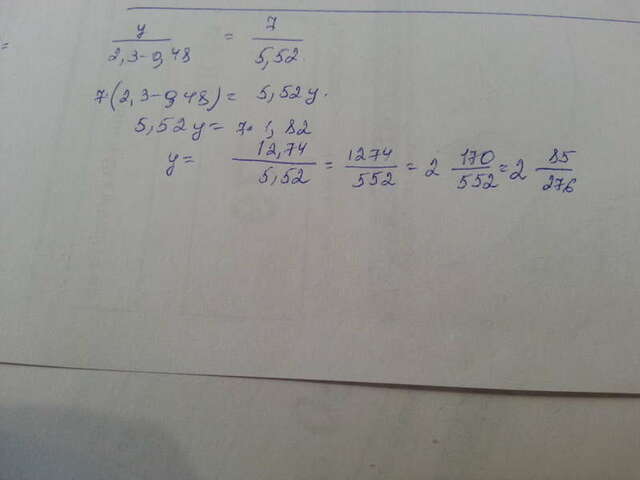 y/(2,3-0,48) = 7/5,52
7(2,3-0,48) = 5,52y.
5,52y = 7·1,82
y = 12,74/5,52 = 1274/552 = 2 170/552 = 2 85/276